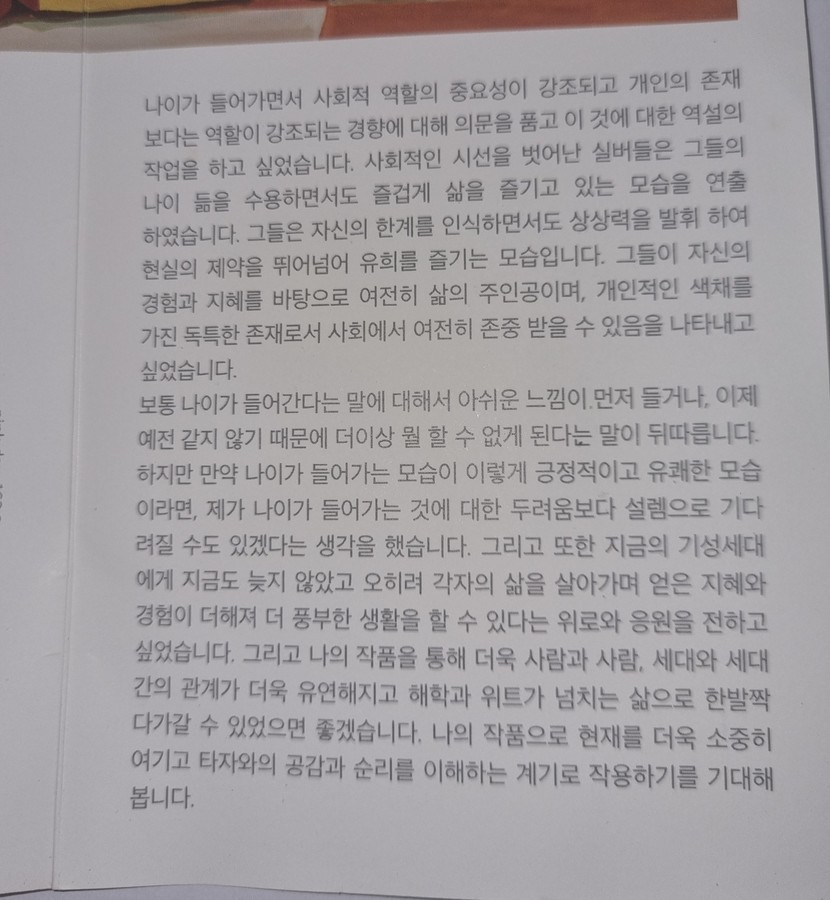 나이가 들어가면서 사회적 역할의 중요성이 강조되고 개인의 존재
보다는 역할이 강조되는 경향에 대해 의문을 품고 이 것에 대한 역설의
작업을 하고 싶었습니다. 사회적인 시선을 벗어난 실버들은 그들의
나이 듦을 수용하면서도 즐겁게 삶을 즐기고 있는 모습을 연출
하였습니다. 그들은 자신의 한계를 인식하면서도 상상력을 발휘 하여
현실의 제약을 뛰어넘어 유희를 즐기는 모습입니다. 그들이 자신의
경험과 지혜를 바탕으로 여전히 삶의 주인공이며, 개인적인 색채를
가진 독특한 존재로서 사회에서 여전히 존중 받을 수 있음을 나타내고
싶었습니다.
보통 나이가 들어간다는 말에 대해서 아쉬운 느낌이 먼저 들거나, 이제
예전 같지 않기 때문에 더이상 뭘 할 수 없게 된다는 말이 뒤따릅니다.
하지만 만약 나이가 들어가는 모습이 이렇게 긍정적이고 유쾌한 모습
이라면, 제가 나이가 들어가는 것에 대한 두려움보다 설렘으로 기다
려질 수도 있겠다는 생각을 했습니다. 그리고 또한 지금의 기성세대
에게 지금도 늦지 않았고 오히려 각자의 삶을 살아가며 얻은 지혜와
경험이 더해져 더 풍부한 생활을 할 수 있다는 위로와 응원을 전하고
싶었습니다. 그리고 나의 작품을 통해 더욱 사람과 사람, 세대와 세대
간의 관계가 더욱 유연해지고 해학과 위트가 넘치는 삶으로 한발짝
다가갈 수 있었으면 좋겠습니다. 나의 작품으로 현재를 더욱 소중히
여기고 타자와의 공감과 순리를 이해하는 계기로 작용하기를 기대해
봅니다.